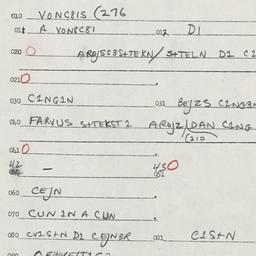 010 VONC8IS (276
011 A VON8C81 012 D1
020 O AR0J5C3S+TEKN/ S+TELN D1 C1
021 O
030 C1NG1N 031 BEJZS C1NG3
040 FARVUS S+TEKST1 AR0JZ/DAN C1NG
(210
041 O
42 — 43 O
051
060 CEJN
070 CUN 1N A CUN
080 CV1S+N D1 CEJN3R 081 C1S+N